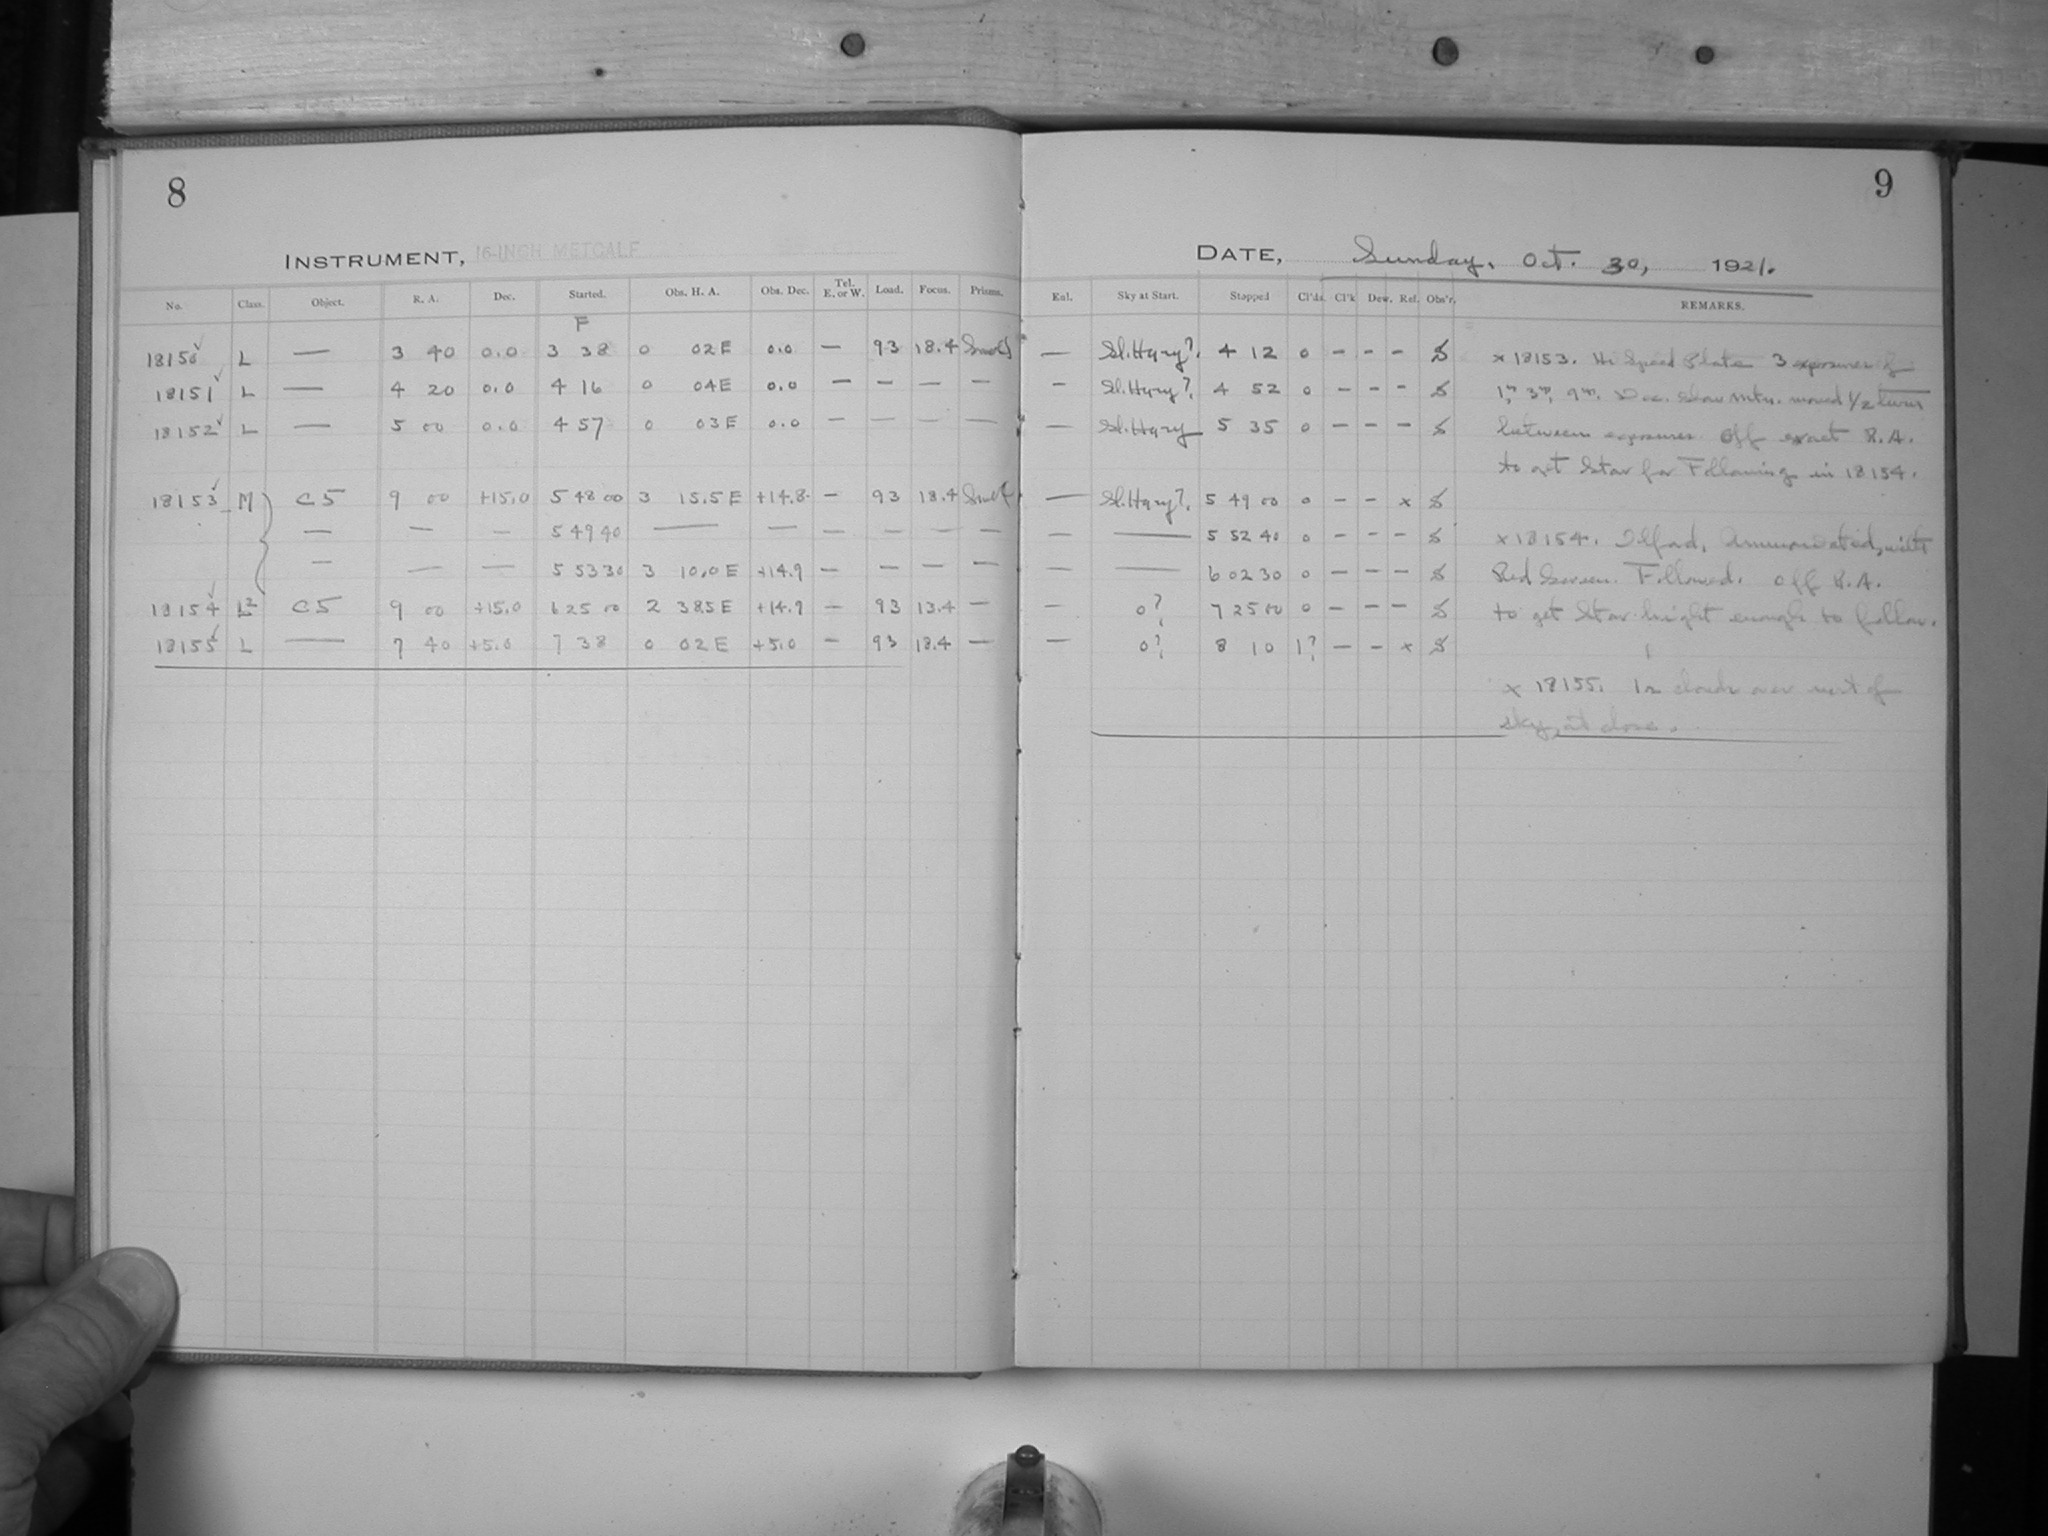 8
INSTRUMENT, 16-INCH METCALF
No. Class. Object. R. A. Dec. Started. Obs. H. A. Obs. Dec. Tel. E. or W. Load. Focus. Prisms.
F
18150 L — 3 40 0.0 3 38 0 02E 0.0 — 93 18.4
18151 L — 4 20 0.0 4 16 0 04E 0.0 — — — —
18152 L — 5 00 0.0 4 57 0 03E 0.0 — — — —
18153 M C5 9 00 +15.0 5 48 00 3 15.5E +14.8 — 93 18.4
— — — 5 49 40 — — — — — —
— — — 5 53 30 3 10.0E +14.9 — — — —
18154 L2 C5 9 00 +15.0 6 25 00 2 38.5E +14.9 — 93 13.4 —
18155 L — 7 40 +5.0 7 38 0 02E +5.0 — 93 13.4 —
9
DATE, Sunday, Oct. 30, 1921.
Enl. Sky at Start. Stopped Cl'ds. Cl'k Dew. Ref. Obs'r. REMARKS.
— Sl. Hazy?. 4 12 0 — — — S
— Sl. Hazy?. 4 52 0 — — — S
— Sl. Hazy 5 35 0 — — — S
— Sl. Hazy?. 5 49 00 0 — — x S
— — 5 52 40 0 — — — S
— — 6 02 30 0 — — — S
— 0? 7 25 00 0 — — — S
— 0? 8 10 1? — — x S
x 18153. Hi Speed Plate 3 exposures of
1m, 3m, 9m. Dec. Slow Mtn. moved 1/2 turn
between exposures. Off exact R.A.
to get Star for Following in 18154.
x 18154. Ilford, Ammoniated, with
Red Screen. Followed. Off R.A.
to get Star bright enough to follow.
x 18155. In clouds over most of
sky, at close.